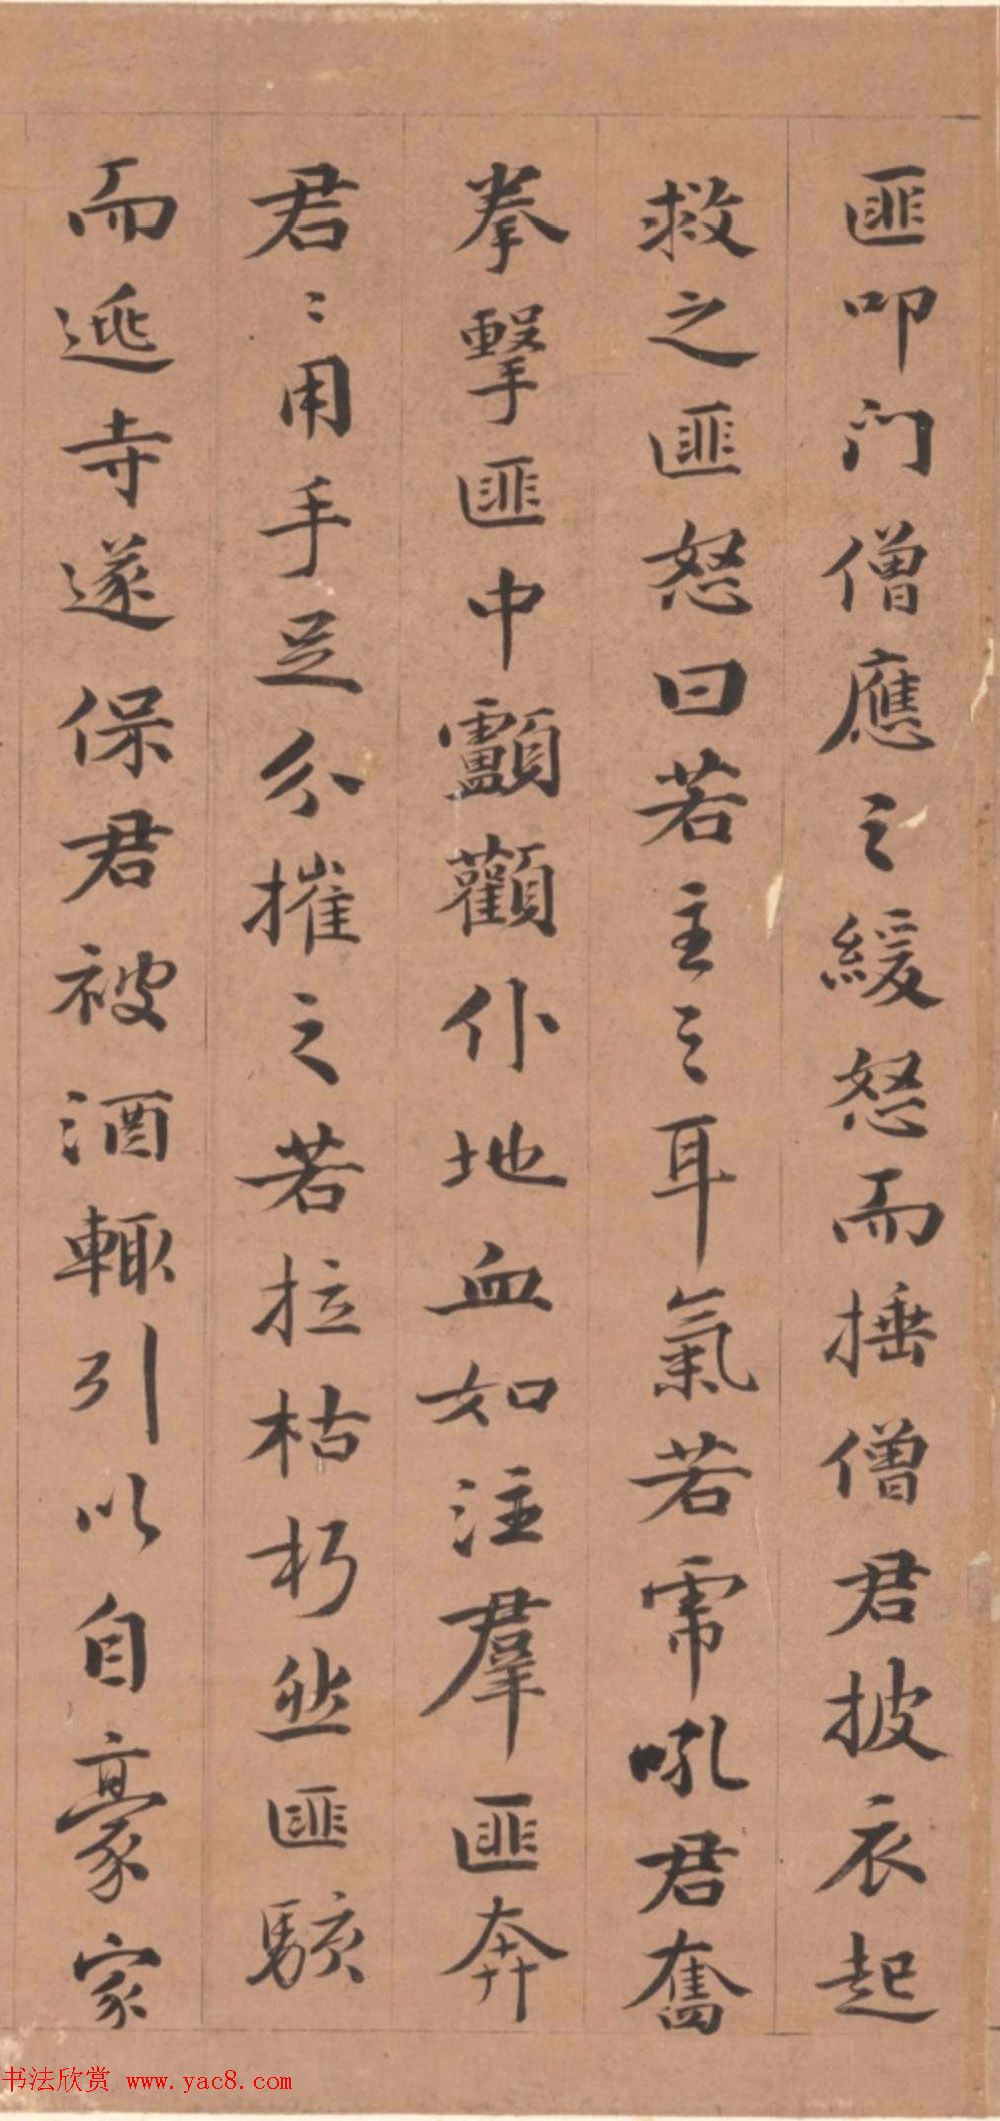 匪叩门僧應之緩怒而捶僧君披衣起
救之匪怒曰若主〻耳氣若需吼君奮
拳擊匪中顱顴仆地血如注羣匪奔
君〻用手足分摧之若拉枯朽然匪駭
而逃寺遂保君被酒輒引以自豪家
书法欣赏 www.yac8.com